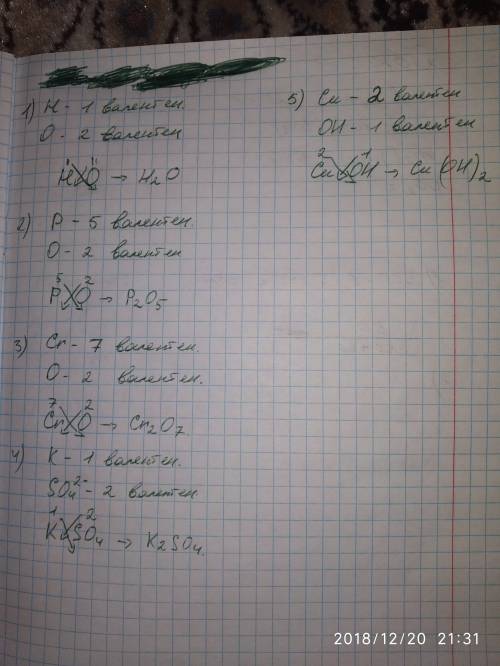 1) H - 1 валентен.
O - 2 валентен
I II
HO → H₂O
2) P - 5 валентен.
O - 2 валентен
5 2
PO → P₂O₅
3) Cr - 7 валентен.
O - 2 валентен.
7 2
CrO → Cr₂O₇.
4) K - 1 валентен.
SO₄²⁻ - 2 валентен
1 2
KSO₄ → K₂SO₄.
5) Cu - 2 валентен
OH - 1 валентен
2 1
CuOH → Cu(OH)₂
2018/12/20 21:31